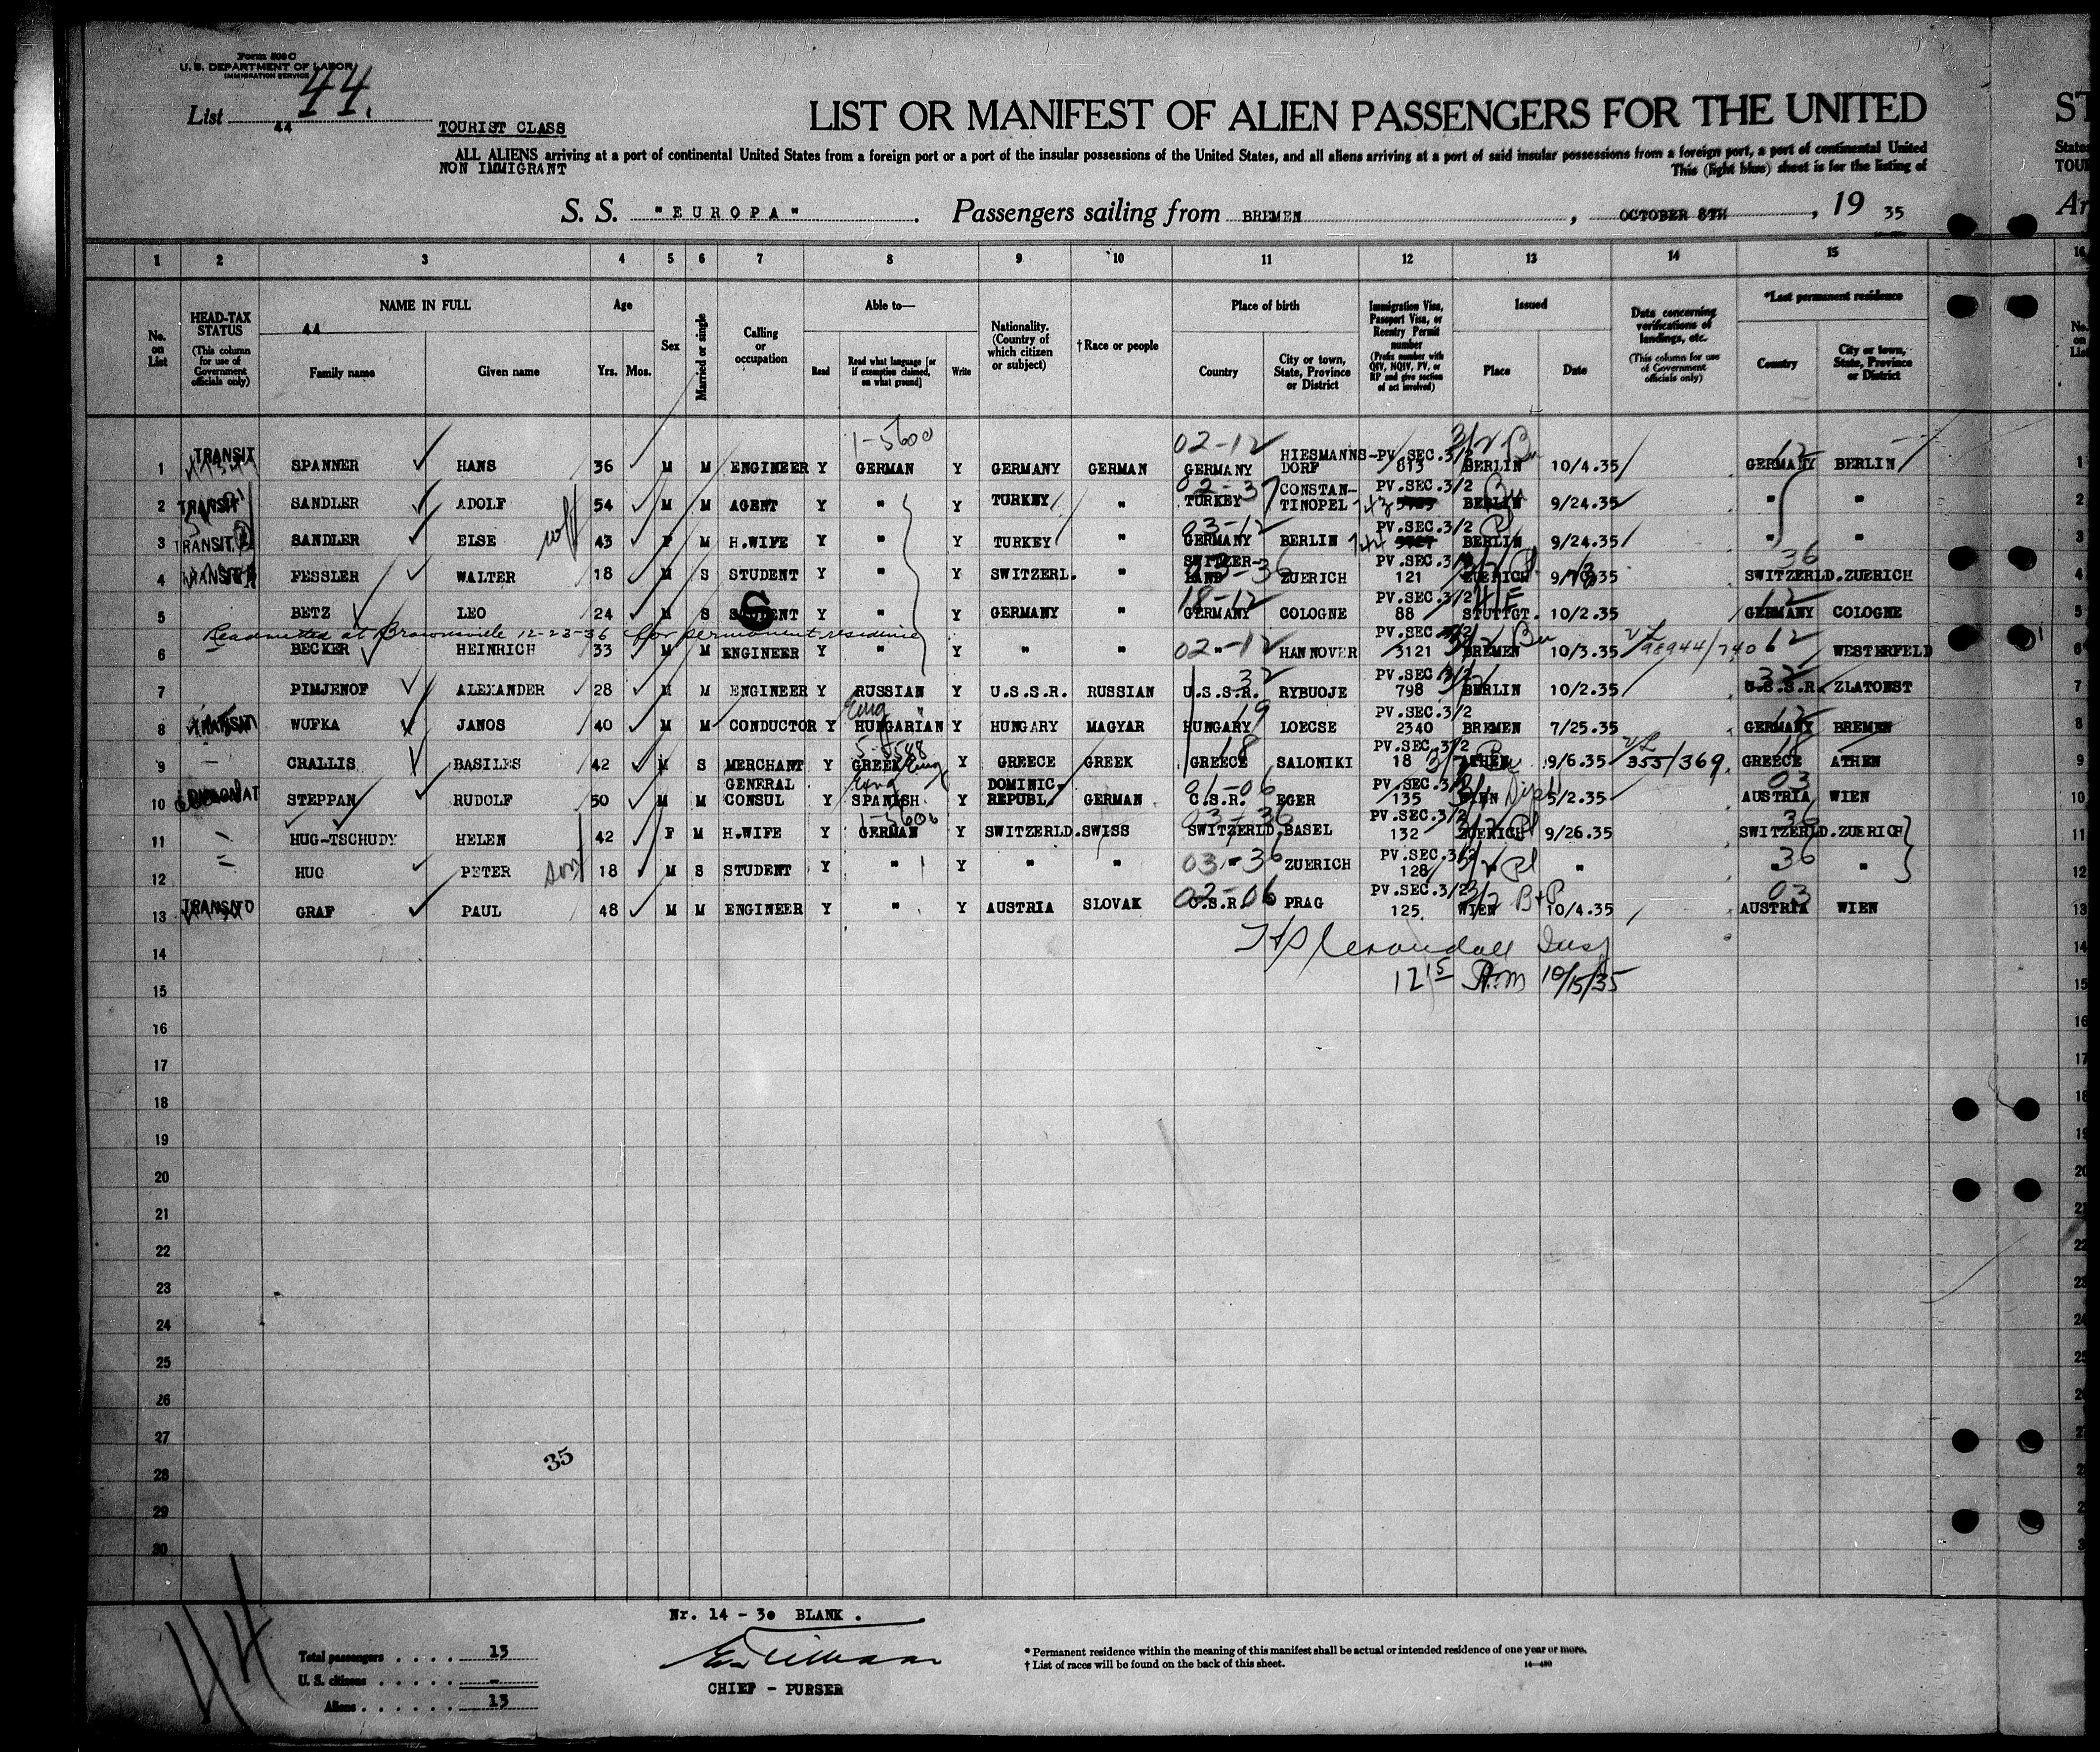 Form 500 C
U. S. DEPARTMENT OF LABOR
IMMIGRATION SERVICE
List 44 44.
TOURIST CLASS
LIST OR MANIFEST OF ALIEN PASSENGERS FOR THE UNITED
ST
ALL ALIENS arriving at a port of continental United States from a foreign port or a port of the insular possessions of the United States, and all aliens arriving at a port of said insular possessions from a foreign port, a port of continental United
States
NON IMMIGRANT
This (light blue) sheet is for the listing of
TOU
S. S. "EUROPA" . Passengers sailing from BREMEN , OCTOBER 8TH , 19 35
Ar
1 2 3 4 5 6 7 8 9 10 11 12 13 14 15 16
No. on List
HEAD-TAX STATUS (This column for use of Government officials only)
NAME IN FULL
44
Family name Given name
Age
Yrs. Mos.
Sex
Married or single
Calling or occupation
Able to—
Read Read what language [or if exemption claimed, on what ground] Write
Nationality. (Country of which citizen or subject)
†Race or people
Place of birth
Country City or town, State, Province or District
Immigration Visa, Passport Visa, or Reentry Permit number (Prefix number with QIV, NQIV, PV, or RP and give section of act involved)
Issued
Place Date
Data concerning verifications of landings, etc. (This column for use of Government officials only)
*Last permanent residence
Country City or town, State, Province or District
No. on List
1-5600 02-12 3/2 Bu 12
1 TRANSIT SPANNER HANS 36 M M ENGINEER Y GERMAN Y GERMANY GERMAN GERMANY HIESMANNS-DORF PV.SEC.3/2 813 BERLIN 10/4.35 GERMANY BERLIN 1
2 TRANSIT SANDLER ADOLF 54 M M AGENT Y " Y TURKEY " TURKEY CONSTAN-TINOPEL PV.SEC.3/2 743 BERLIN 9/24.35 " " 2
3 TRANSIT SANDLER ELSE wf 43 F M H.WIFE Y " Y TURKEY " 03-12 GERMANY BERLIN PV.SEC.3/2 744 BERLIN 9/24.35 " " 3
4 TRANSIT FESSLER WALTER 18 M S STUDENT Y " Y SWITZERL. " SWITZER-LAND ZUERICH PV.SEC.3/2 121 ZUERICH 36 SWITZERLD. ZUERICH 4
5 BETZ LEO 24 M S STUDENT S Y " Y GERMANY " 18-12 GERMANY COLOGNE PV.SEC.3/2 88 STUTTGT. 10/2.35 12 GERMANY COLOGNE 5
Readmitted at Brownsville 12-23-36 for permanent residence
6 BECKER HEINRICH 33 M M ENGINEER Y " Y " " 02-12 " HANNOVER PV.SEC.3/2 3121 BREMEN 10/3.35 12 WESTERFELD 6
7 PIMJENOF ALEXANDER 28 M M ENGINEER Y RUSSIAN Y U.S.S.R. RUSSIAN 32 U.S.S.R. RYBUOJE PV.SEC.3/2 798 BERLIN 10/2.35 32 U.S.S.R. ZLATONST 7
8 TRANSIT WUFKA JANOS 40 M M CONDUCTOR Y Eng HUNGARIAN Y HUNGARY MAGYAR 19 HUNGARY LOECSE PV.SEC.3/2 2340 BREMEN 7/25.35 12 GERMANY BREMEN 8
9 CRALLIS BASILES 42 M S MERCHANT Y GREEK Eng Y GREECE GREEK 18 GREECE SALONIKI PV.SEC.3/2 18 ATHEN 9/6.35 355/369 18 GREECE ATHEN 9
10 DIPLOMAT STEPPAN RUDOLF 50 M M GENERAL CONSUL Y Eng SPANISH Y DOMINIC. REPUBL. GERMAN 01-06 C.S.R. EGER PV.SEC.3/1 135 WIEN Dipl 5/2.35 03 AUSTRIA WIEN 10
11 HUG-TSCHUDY HELEN 42 F M H.WIFE Y 1-5600 GERMAN Y SWITZERLD. SWISS 03-36 SWITZERLD. BASEL PV.SEC.3/2 132 ZUERICH 9/26.35 36 SWITZERLD. ZUERICH 11
12 HUG PETER son 18 M S STUDENT Y " Y " " 03-36 " ZUERICH PV.SEC.3/2 128 " " 36 " " 12
13 TRANSIT GRAF PAUL 48 M M ENGINEER Y " Y AUSTRIA SLOVAK 02-06 C.S.R. PRAG PV.SEC.3/2 125 WIEN 10/4.35 03 AUSTRIA WIEN 13
14 Insp 14
15 12 15 P.M 10/15/35 15
16 16
17 17
18 18
19 19
20 20
21 21
22 22
23 23
24 24
25 25
26 26
27 27
35
28 28
29 29
30
44
Nr. 14 - 30 BLANK.
CHIEF - PURSER
Total passengers . . . . 13
U. S. citizens . . . . . -
Aliens . . . . . . 13
* Permanent residence within the meaning of this manifest shall be actual or intended residence of one year or more.
† List of races will be found on the back of this sheet.
14—430